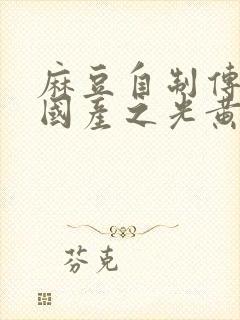 麻豆自制傳
國產之光黃
芬克